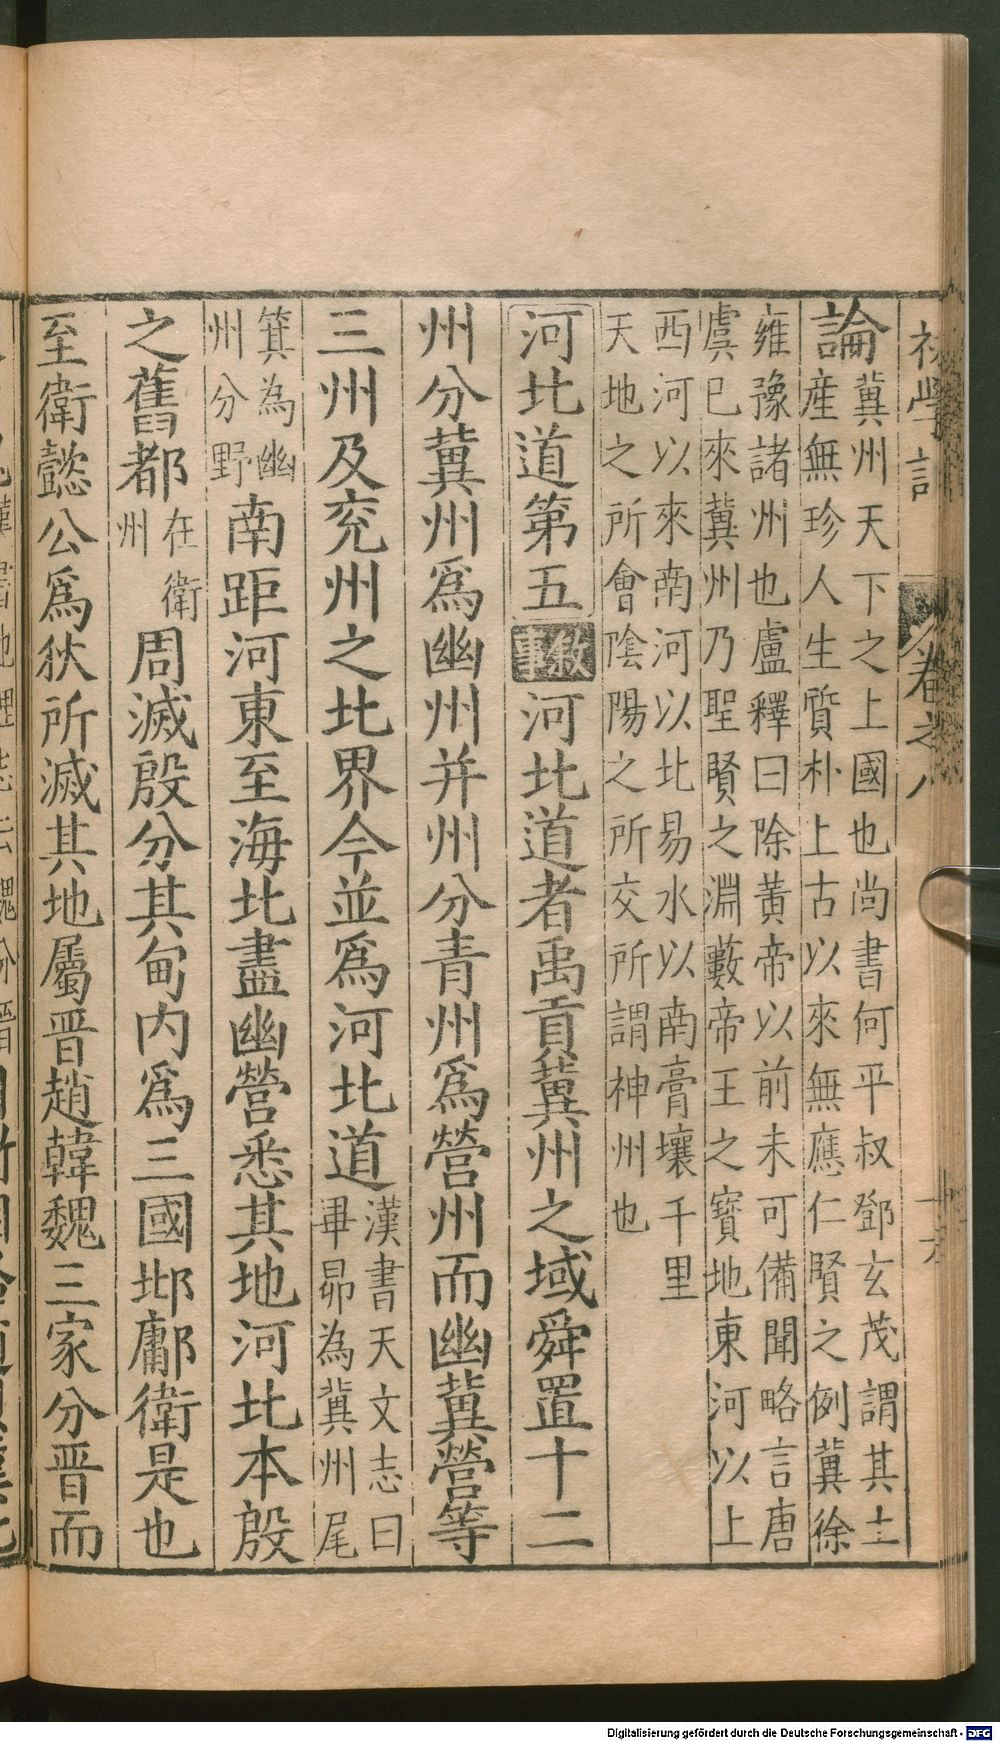 初學記 卷之八
論冀州天下之上國也尚書何平叔鄧玄茂謂其土
產無珍人生質朴上古以來無應仁賢之例冀徐
雍豫諸州也盧釋曰除黃帝以前未可備聞略言唐
虞已來冀州乃聖賢之淵藪帝王之寶地東河以上
西河以來南河以北易水以南膏壤千里
天地之所會陰陽之所交所謂神州也
河北道第五 敘事 河北道者禹貢冀州之域舜置十二
州分冀州爲幽州并州分青州爲營州而幽冀營等
三州及兖州之北界今並爲河北道漢書天文志曰畢昴為冀州尾
箕為幽州分野南距河東至海北盡幽營悉其地河北本殷
之舊都在衛州周滅殷分其甸内爲三國邶鄘衛是也
至衛懿公爲狄所滅其地屬晋趙韓魏三家分晋而
Digitalisierung gefördert durch die Deutsche Forschungsgemeinschaft - DFG